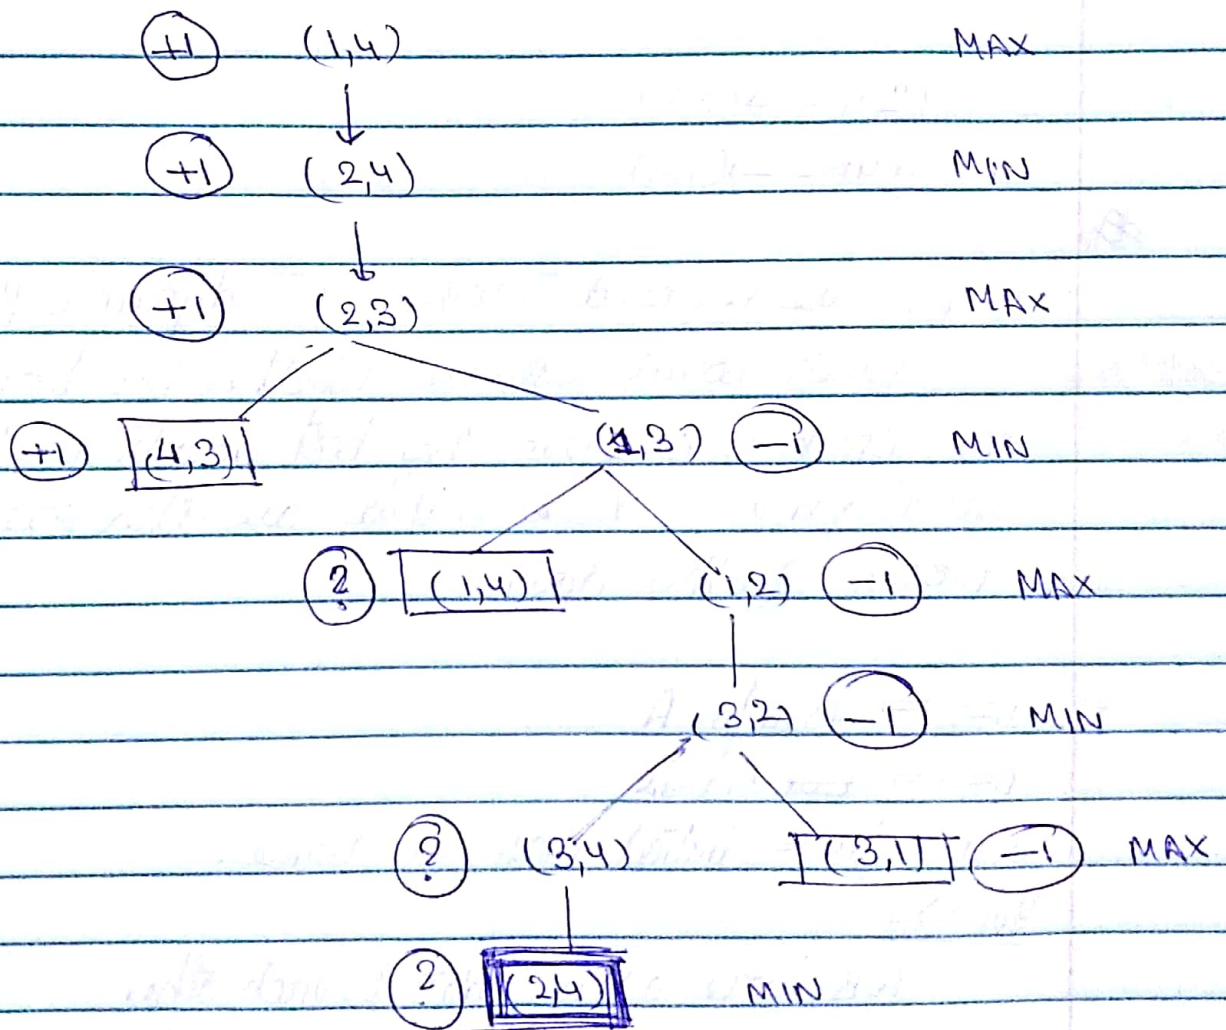 +1 (1,4) MAX
+1 (2,4) MIN
+1 (2,3) MAX
+1 (4,3) (1,3) -1 MIN
? (1,4) (1,2) -1 MAX
(3,2) -1 MIN
? (3,4) (3,1) -1 MAX
? (2,4) MIN